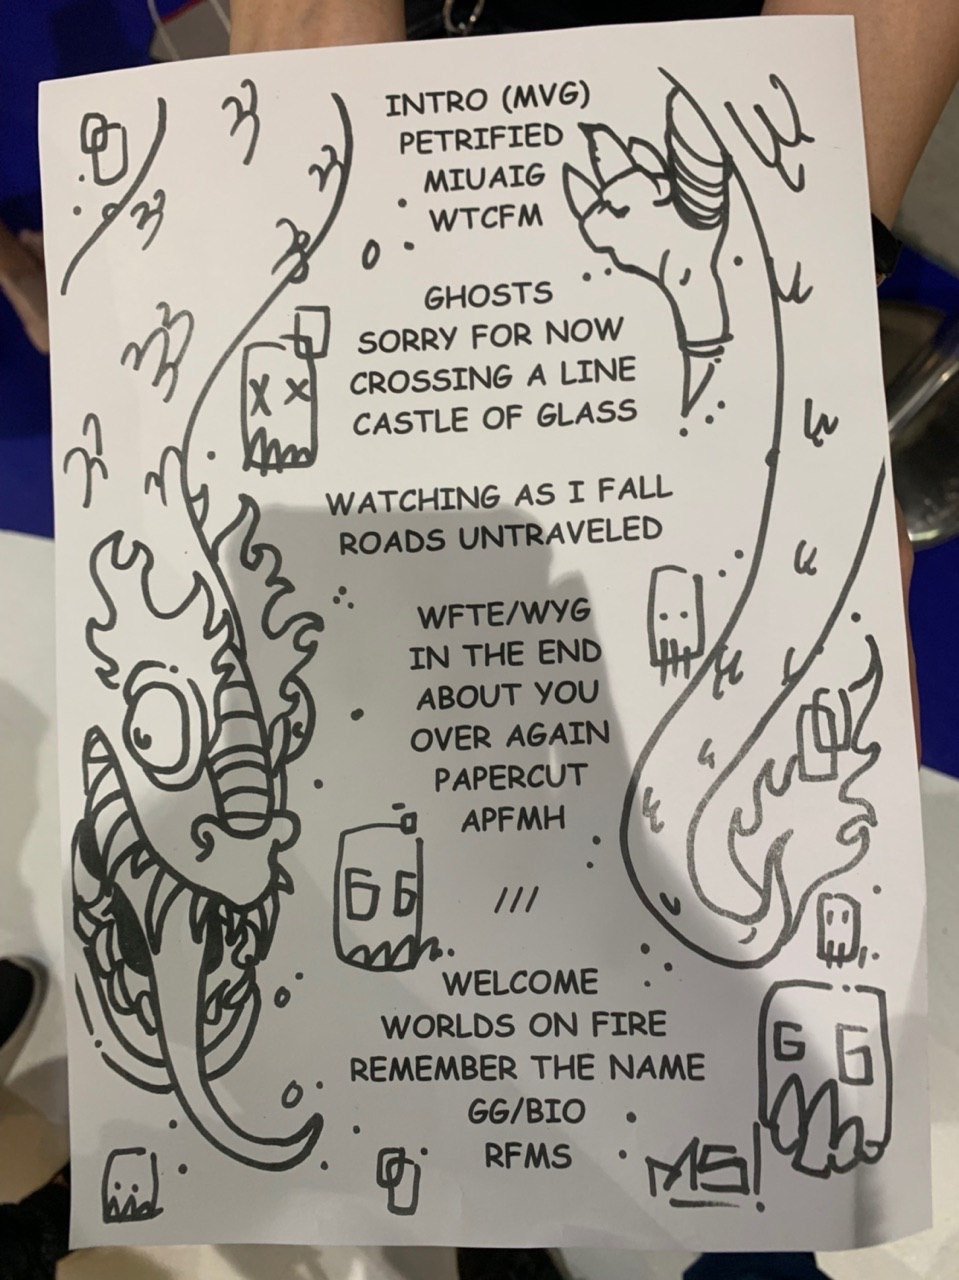 INTRO (MVG)
PETRIFIED
MIUAIG
WTCFM
GHOSTS
SORRY FOR NOW
CROSSING A LINE
CASTLE OF GLASS
WATCHING AS I FALL
ROADS UNTRAVELED
WFTE/WYG
IN THE END
ABOUT YOU
OVER AGAIN
PAPERCUT
APFMH
G G
///
WELCOME
WORLDS ON FIRE
REMEMBER THE NAME
GG/BIO
RFMS
G G
MS!